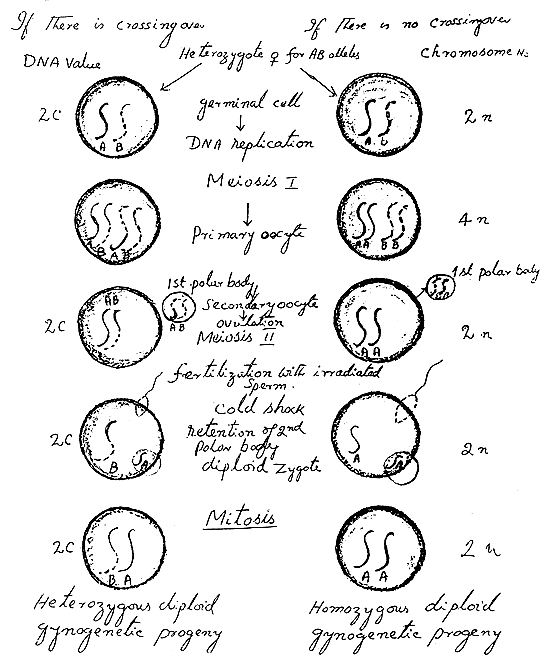 If There is crossing over
If There is no crossing over
Heterozygote ♀ for AB alleles
DNA value
Chromosome N:
2C
germinal cell
2 n
A B
A b
DNA replication
Meiosis I
4 n
B A B
AA BB
Primary oocyte
1st polar body
1st polar body
AB
2C
Secondary oocyte
2 n
A B
ovulation
Meiosis II
A A
fertilization with irradiated
sperm.
2C
Cold shock
2n
Retention of 2nd
Polar body
B A
A A
diploid Zygote
Mitosis
2C
2 n
B A
A A
Heterozygous diploid
gynogenetic progeny
Homozygous diploid
gynogenetic progeny